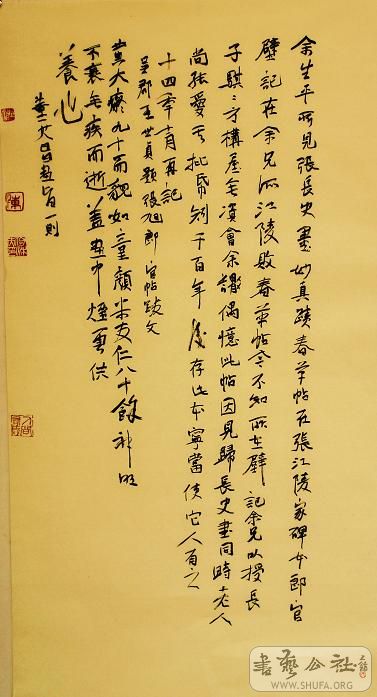 余生平所见張長史書妙真蹟春草帖在張江陵家碑女郎官
壁記在余兄所江陵敗春草帖今不知所在壁記余兄以授長
子騏方構屋無資會余謝偶憶此帖因見歸長史書同時老人
尚能愛之批帋钩千百年後存此本寧當使它人有之
十四年十月再記
呈郡王世貞题張旭郎官帖跋文
黄大癡九十而貌如童顏米友仁八十餘神明
不衰無疾而逝蓋畫中煙雲供
養也
董其昌畫旨一則
書藝公社
WWW.SHUFA.ORG